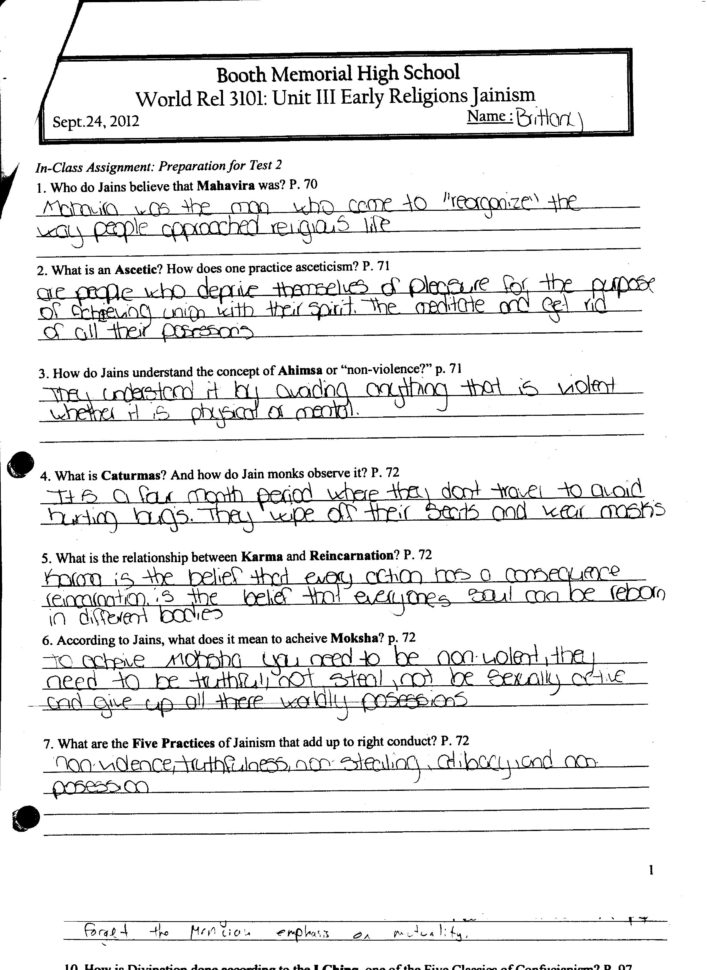 Booth Memorial High School
World Rel 3101: Unit III Early Religions Jainism
Sept.24, 2012 Name: Brittany
In-Class Assignment: Preparation for Test 2
1. Who do Jains believe that Mahavira was? P. 70
Mahavira was the man who came to "reorganize" the
way people approached religious life
2. What is an Ascetic? How does one practice asceticism? P. 71
are people who deprive themselves of pleasure for the purpose
of achieving union with their spirit. The meditate and get rid
of all their possesions
3. How do Jains understand the concept of Ahimsa or "non-violence?" p. 71
They understand it by avoiding anything that is violent
whether it is physical or mental.
4. What is Caturmas? And how do Jain monks observe it? P. 72
It is a four month period where they dont travel to avoid
hurting bugs. They wipe off their seats and wear masks
5. What is the relationship between Karma and Reincarnation? P. 72
Karma is the belief that every action has a consequence
reincarnation is the belief that everyones soul can be reborn
in different bodies
6. According to Jains, what does it mean to acheive Moksha? p. 72
To acheive Moksha you need to be non-violent, they
need to be truthful, not steal, not be sexually active
and give up all there worldly posessions
7. What are the Five Practices of Jainism that add up to right conduct? P. 72
non-violence, truthfulness, non-stealing, celibacy, and non
posession
1
forget the Mencian emphasis on mutuality.
10. How is Divination done according to the I Ching, one of the Five Classics of Confucianism? P. 97